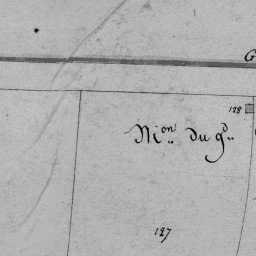 G
128
M.on du g.d
127